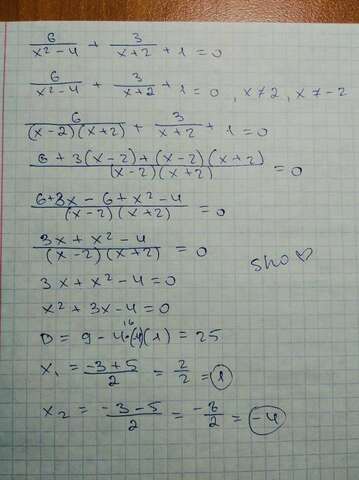 6/(x²-4) + 3/(x+2) + 1 = 0
6/(x²-4) + 3/(x+2) + 1 = 0, x≠2, x≠-2
6/((x-2)(x+2)) + 3/(x+2) + 1 = 0
(6+3(x-2)+(x-2)(x+2))/((x-2)(x+2)) = 0
(6+3x-6+x²-4)/((x-2)(x+2)) = 0
(3x+x²-4)/((x-2)(x+2)) = 0
3x+x²-4=0
x²+3x-4=0
x₁ = (-3+5)/2 = 2/2 = 1